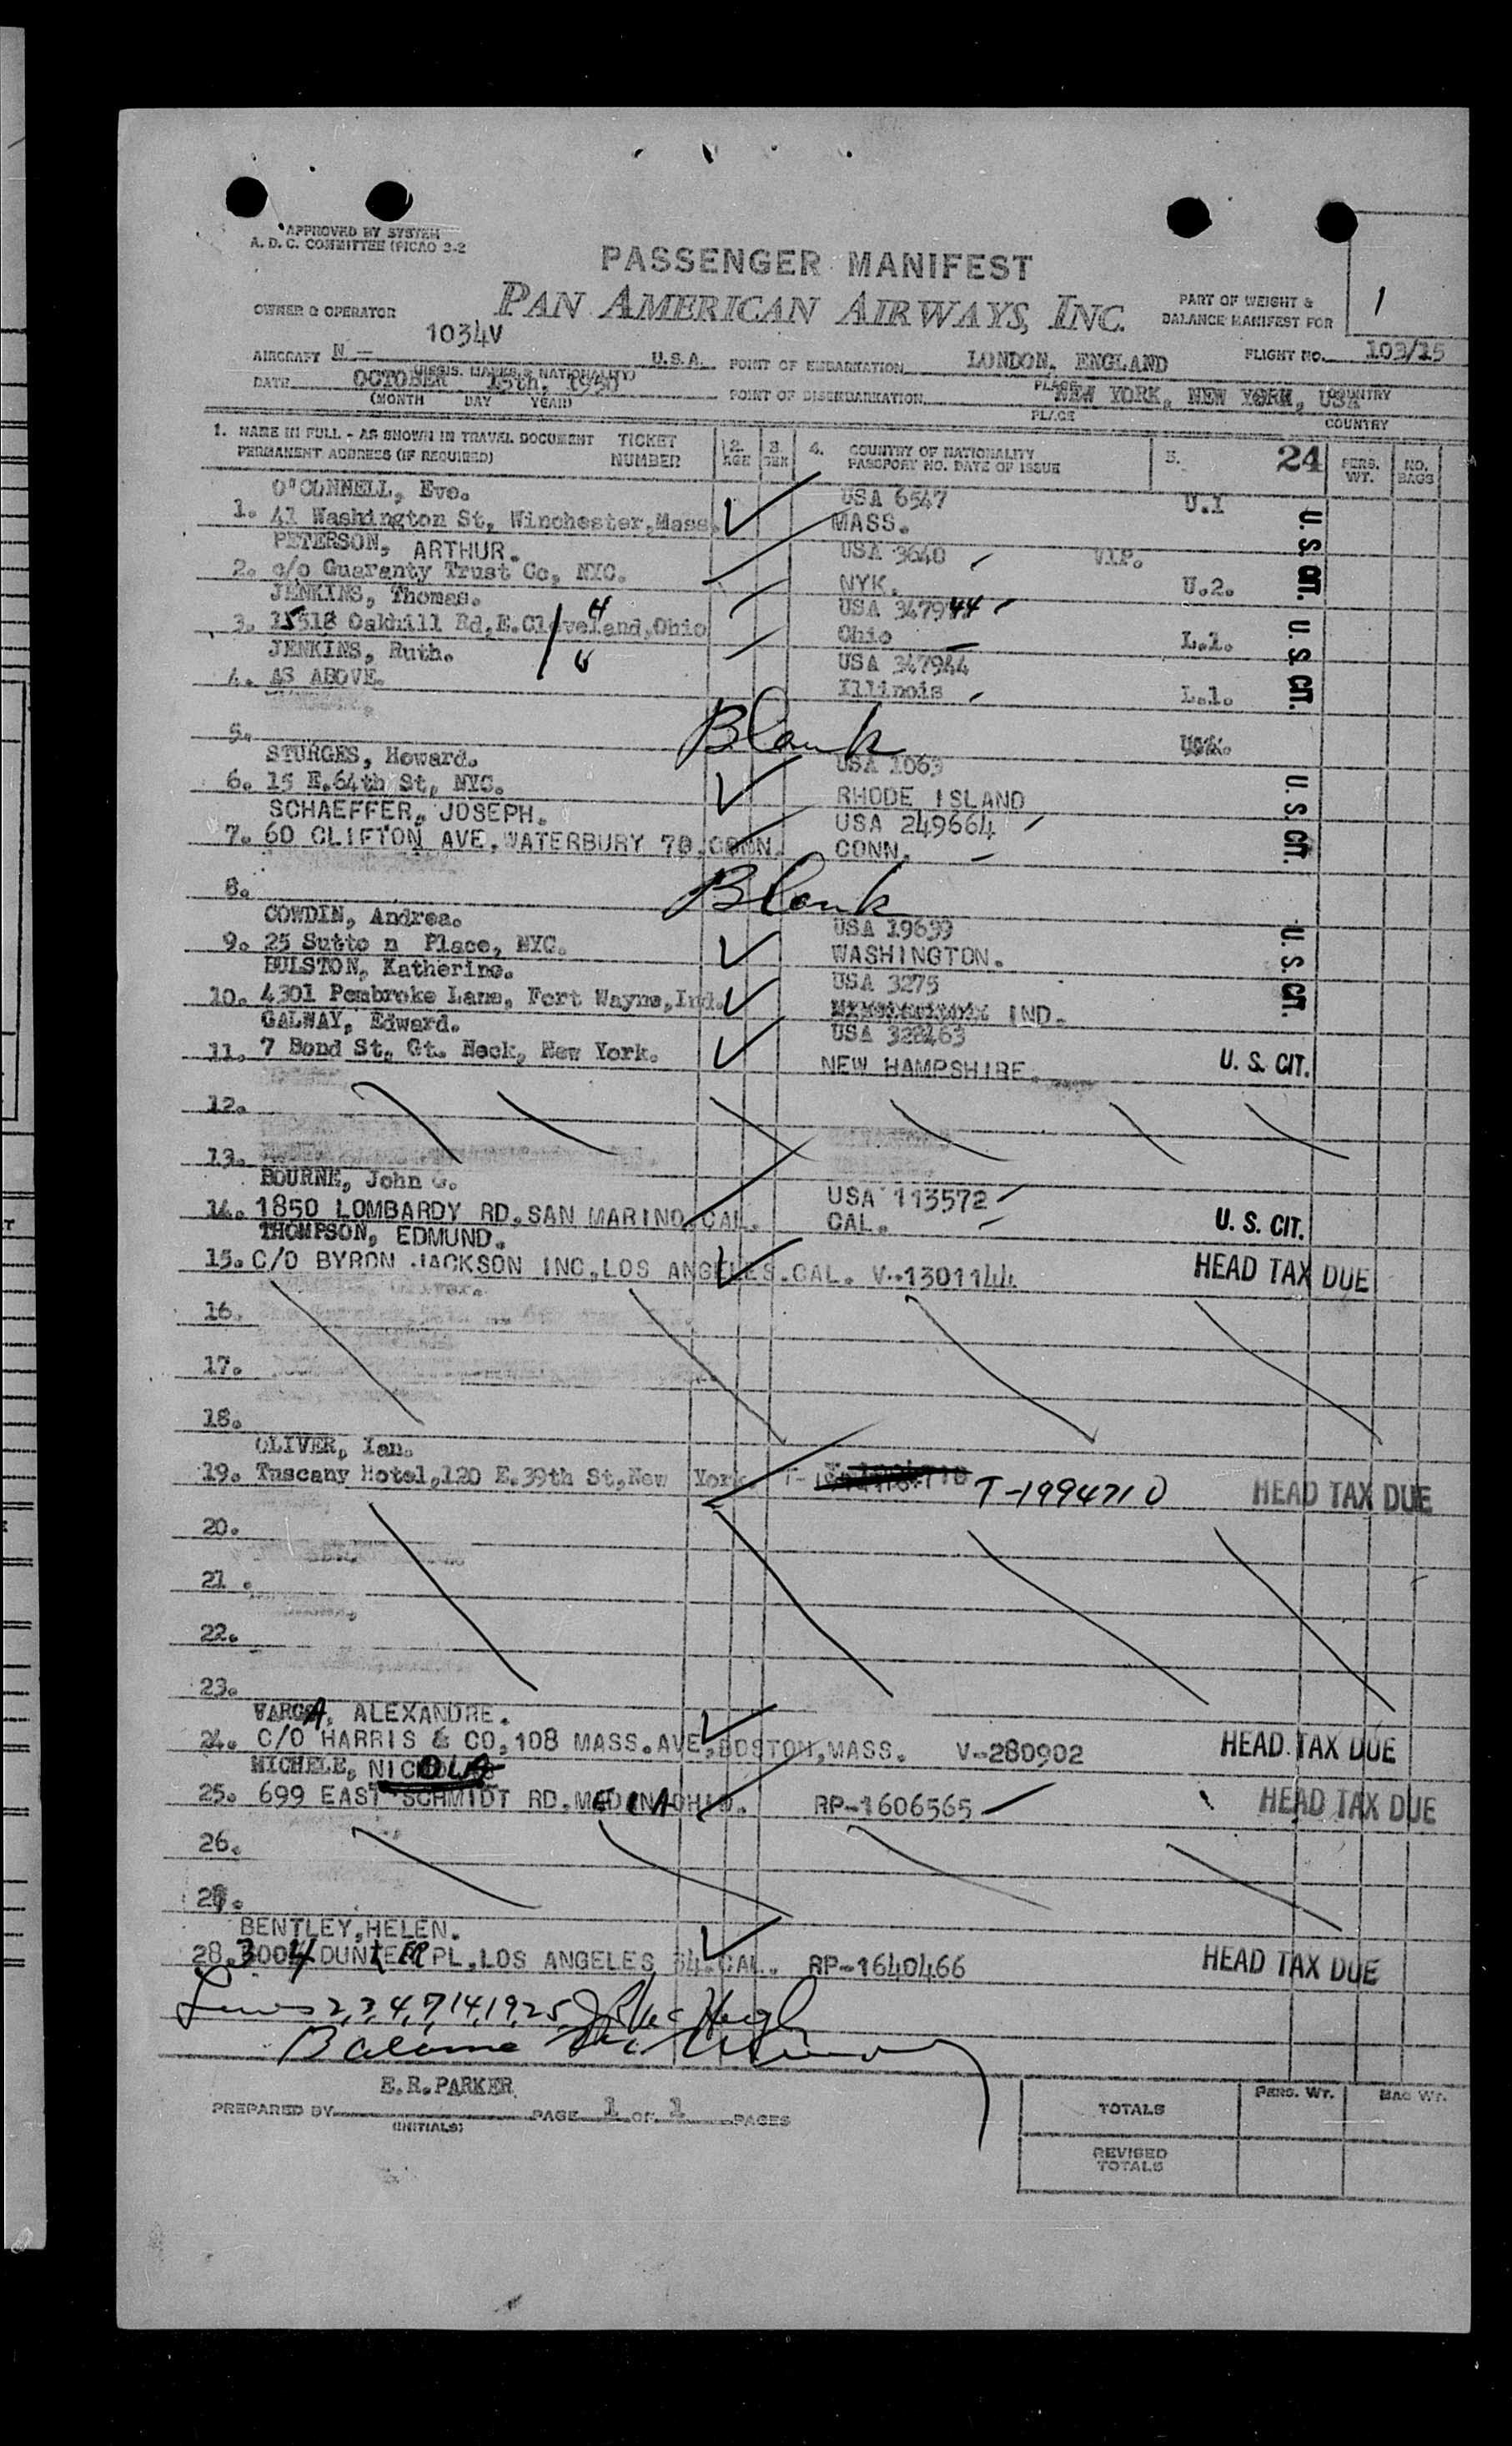 APPROVED BY SYSTEM
A. D. C. COMMITTEE (PICAO 2-2
PASSENGER MANIFEST
OWNER & OPERATOR PAN AMERICAN AIRWAYS, INC. PART OF WEIGHT & BALANCE MANIFEST FOR 1
AIRCRAFT N - 1034V U.S.A. POINT OF EMBARKATION LONDON, ENGLAND FLIGHT NO. 103/15
(REGIS. MARKS & NATIONALITY) PLACE COUNTRY
DATE OCTOBER 15th, 1950 POINT OF DISEMBARKATION NEW YORK, NEW YORK, USA
(MONTH DAY YEAR) PLACE COUNTRY
1. NAME IN FULL - AS SHOWN IN TRAVEL DOCUMENT TICKET 2. 3. 4. COUNTRY OF NATIONALITY 5. 24 PERS. NO.
PERMANENT ADDRESS (IF REQUIRED) NUMBER AGE SEX PASSPORT NO. DATE OF ISSUE WT. BAGS
O'CONNELL, Eve. USA 6547 U.1
1. 41 Washington St, Winchester, Mass. MASS. U. S. CIT.
PETERSON, ARTHUR. USA 3640 V.I.P.
2. c/o Guaranty Trust Co, NYC. NYK. U.2.
JENKINS, Thomas. USA 347944
3. 15518 Oakhill Rd, E. Cleveland, Ohio Ohio L.1. U. S. CIT.
JENKINS, Ruth. USA 347944
4. AS ABOVE. Illinois L.1.
5. Blank
STURGES, Howard. USA 1063
6. 15 E. 64th St, NYC. RHODE ISLAND U. S. CIT.
SCHAEFFER, JOSEPH. USA 249664
7. 60 CLIFTON AVE, WATERBURY 70, CONN. CONN.
8. Blank
COWDIN, Andrea. USA 19699
9. 25 Sutto n Place, NYC. WASHINGTON. U. S. CIT.
BULSTON, Katherine. USA 3275
10. 4301 Pembroke Lane, Fort Wayne, Ind. IND.
GALWAY, Edward. USA 322463
11. 7 Bond St, Gt. Neck, New York. NEW HAMPSHIRE. U. S. CIT.
12.
13.
BOURNE, John G. USA 113572
14. 1850 LOMBARDY RD. SAN MARINO, CAL. CAL. U. S. CIT.
THOMPSON, EDMUND.
15. C/O BYRON JACKSON INC, LOS ANGELES. CAL. V-1301144 HEAD TAX DUE
16.
17.
18.
OLIVER, Ian.
19. Tuscany Hotel, 120 E. 39th St, New York T- T-1994710 HEAD TAX DUE
20.
21 .
22.
23.
VARGA, ALEXANDRE.
24. C/O HARRIS & CO, 108 MASS. AVE, BOSTON, MASS. V-280902 HEAD TAX DUE
MICHELE, NICOLA
25. 699 EAST SCHMIDT RD. MEDINA OHIO. RP-1606565 HEAD TAX DUE
26.
27.
BENTLEY, HELEN.
28. 3004 DUNLEER PL, LOS ANGELES 34. CAL. RP-1640466 HEAD TAX DUE
Lines 2,3,4,7,14,19,25
Balance
E.R. PARKER
PREPARED BY (INITIALS) PAGE 1 OF 1 PAGES
PERS. WT. BAG WT.
TOTALS
REVISED TOTALS